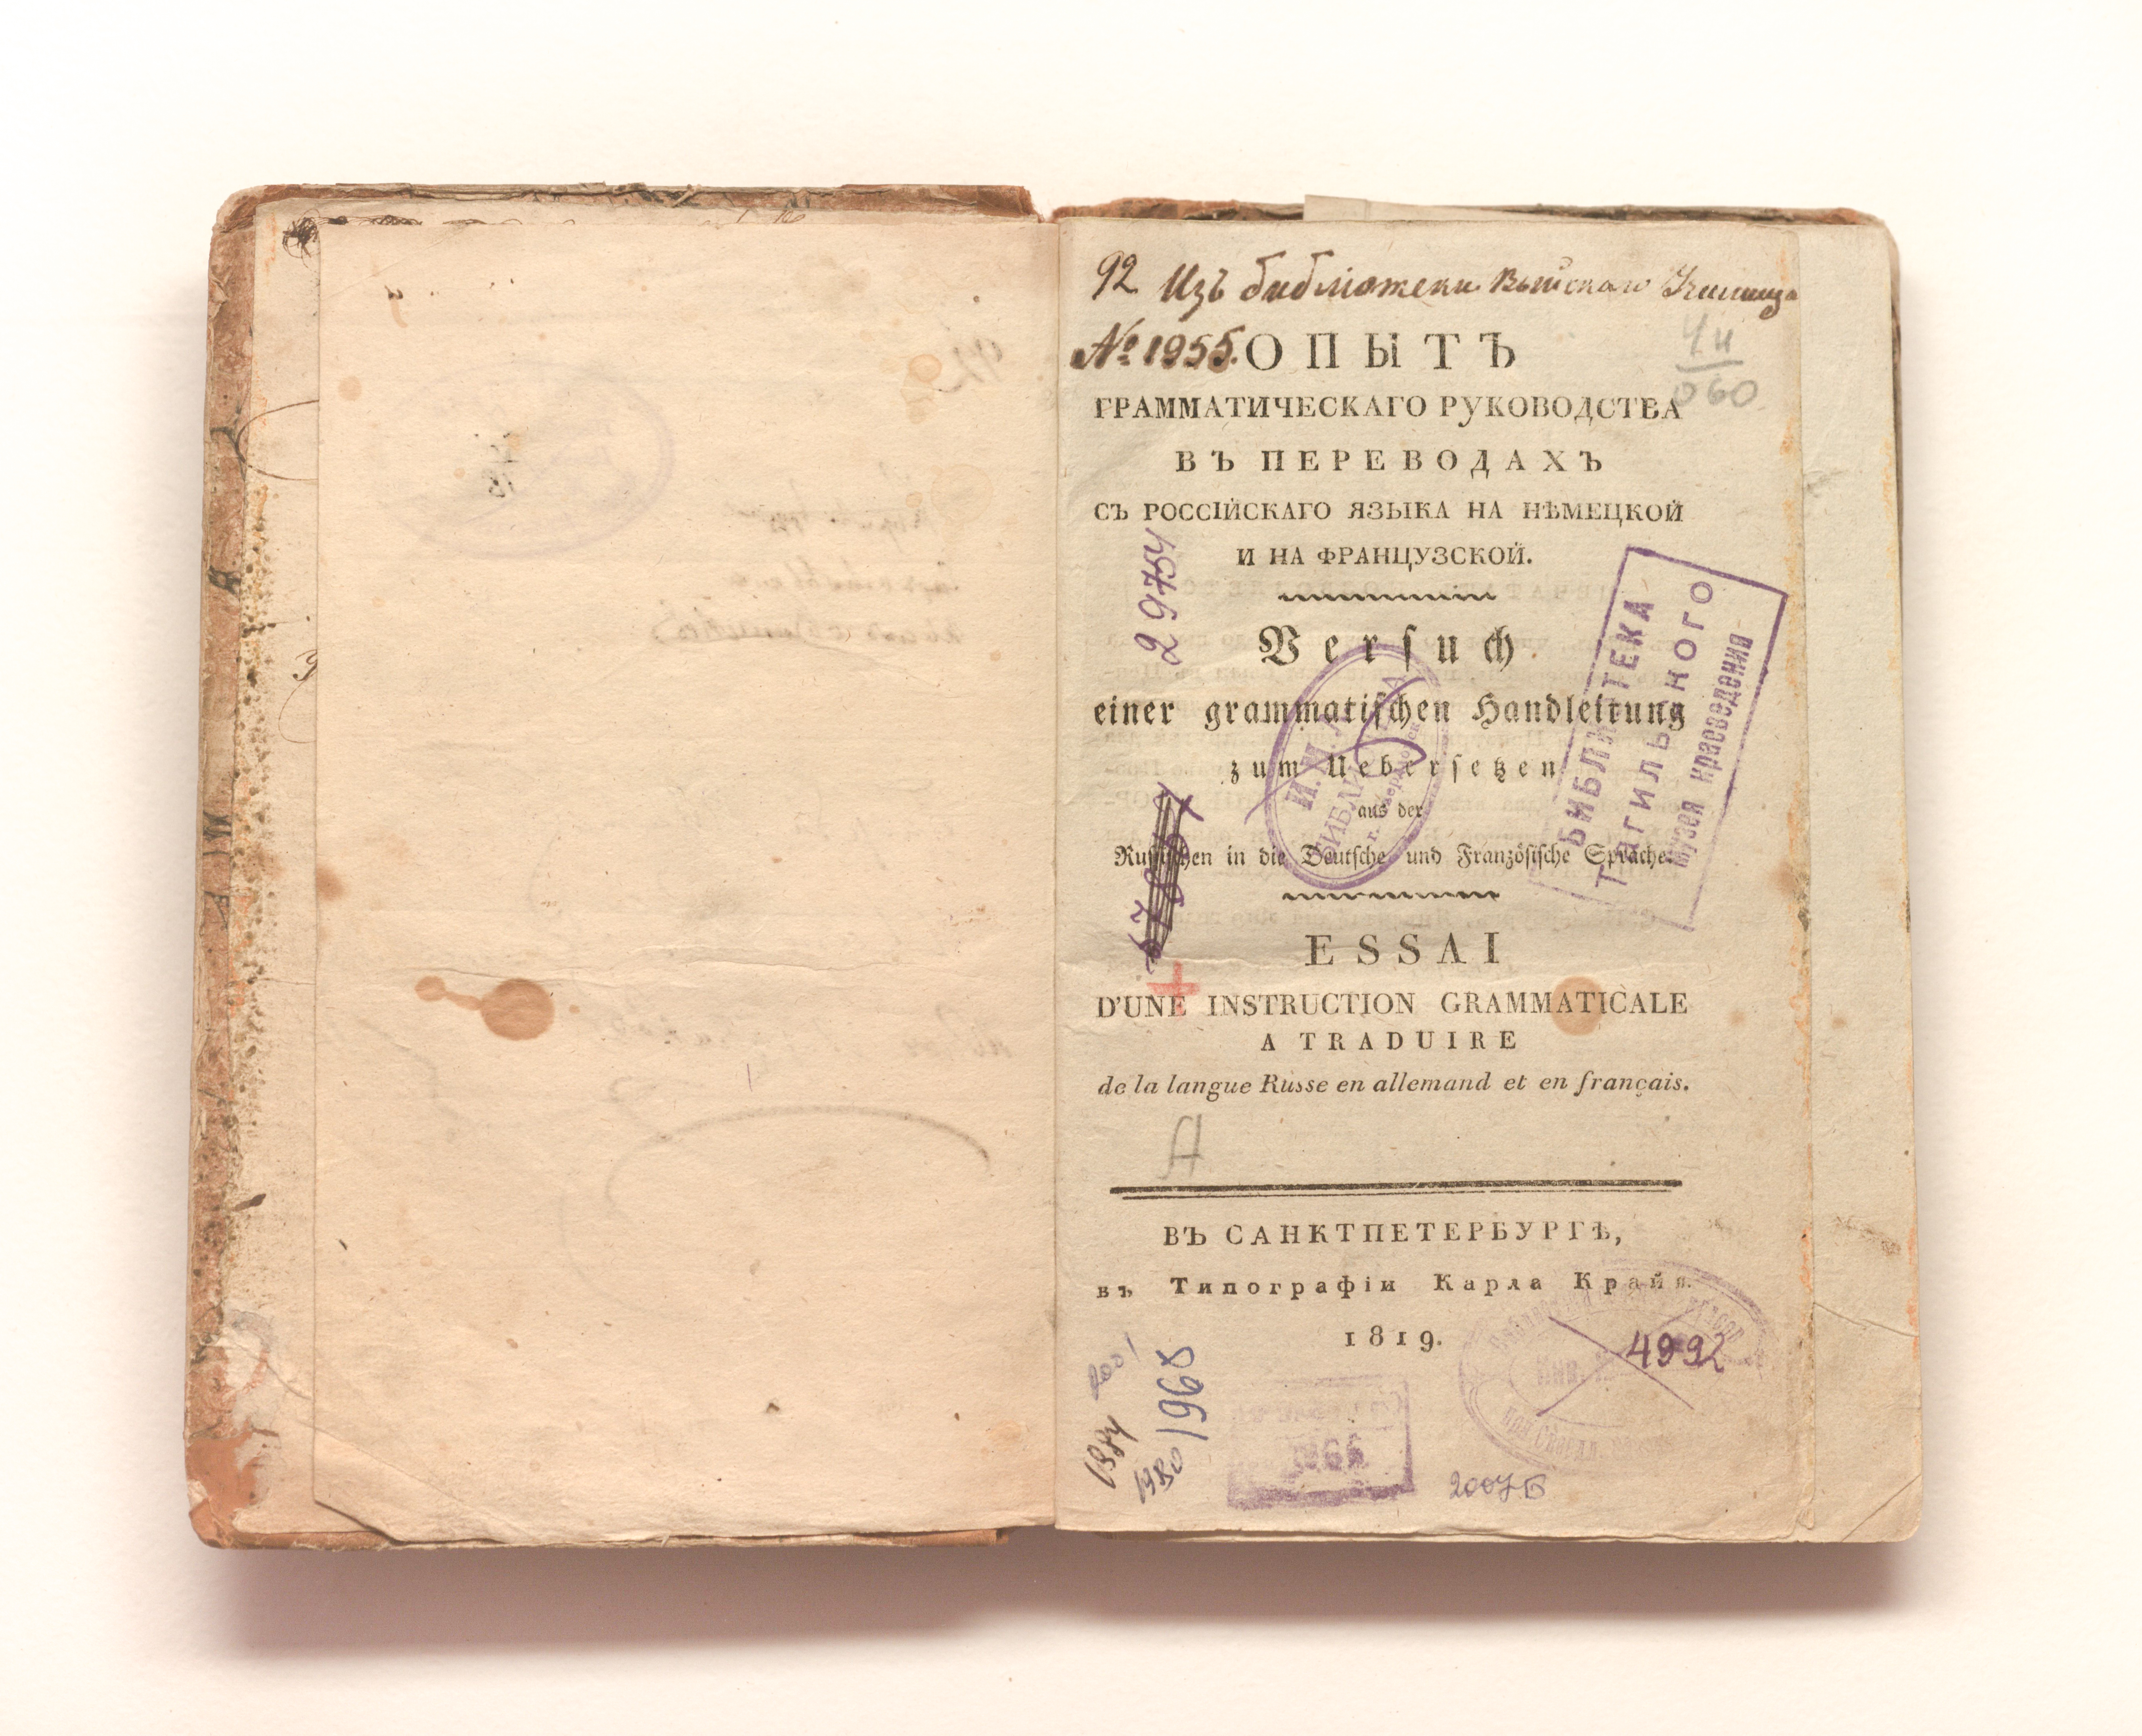 92 Изъ библіотеки Выйскаго Училища
№ 1955.
Чи
060
ОПЫТЪ
ГРАММАТИЧЕСКАГО РУКОВОДСТВА
ВЪ ПЕРЕВОДАХЪ
СЪ РОССІЙСКАГО ЯЗЫКА НА НѢМЕЦКОЙ
И НА ФРАНЦУЗСКОЙ.
29754
Versuch
einer grammatischen Handleitung
zum Uebersetzen
aus der
Russischen in die Deutsche und Französische Sprache.
БИБЛИОТЕКА
ТАГИЛЬСКОГО
Музея краеведения
ESSAI
D'UNE INSTRUCTION GRAMMATICALE
A TRADUIRE
de la langue Russe en allemand et en français.
А
ВЪ САНКТПЕТЕРБУРГѢ,
въ Типографіи Карла Крайя.
1819.
4992
2001
1984
1980
1968
1966
2007 Б